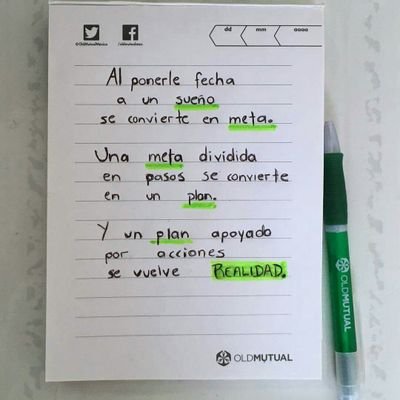 dd mm aaaa
@OldMutualMexico
Al ponerle fecha
a un sueño
se convierte en meta.
Una meta dividida
en pasos se convierte
en un plan.
Y un plan apoyado
por acciones
se vuelve REALIDAD.
OLDMUTUAL
OLDMUTUAL